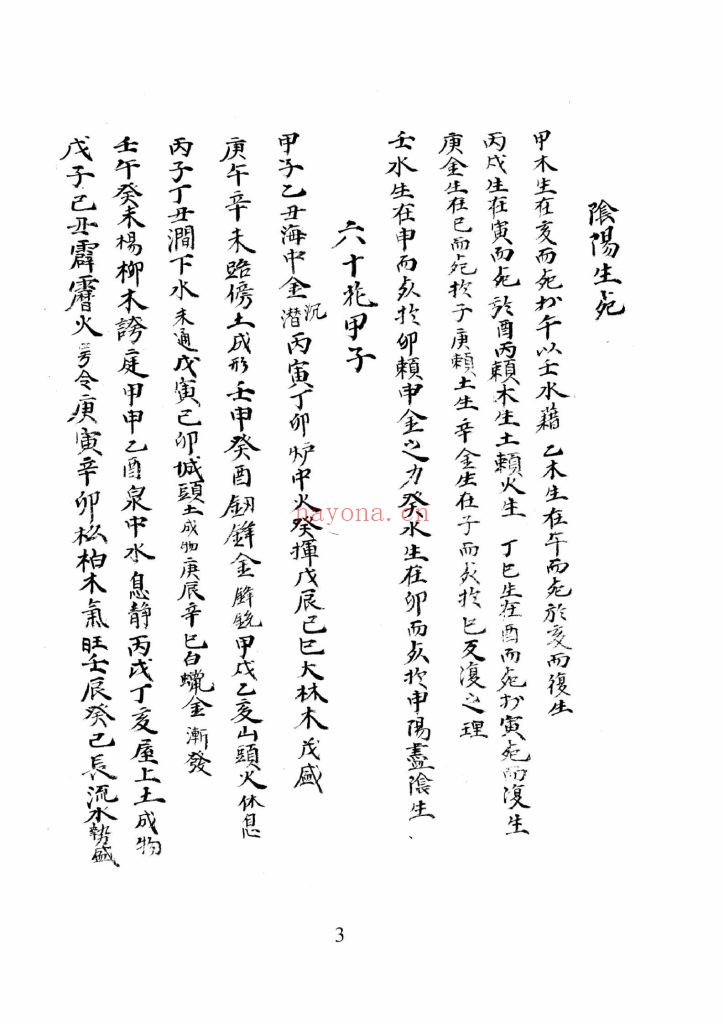 陰陽生死
甲木生在亥而死於午以壬水藉 乙木生在午而死於亥而復生
丙戊生在寅而死於酉丙賴木生土賴火生 丁己生在酉而死於寅死而復生
庚金生在巳而死於子庚賴土生辛金生在子而死於巳反復之理
壬水生在申而死於卯賴申金之力癸水生在卯而死於申陽盡陰生
六十花甲子
甲子乙丑海中金沉潛丙寅丁卯炉中火癸揮戊辰己巳大林木茂盛
庚午辛未路傍土成形壬申癸酉釼鋒金鋒銳甲戌乙亥山頭火休息
丙子丁丑澗下水未通戊寅己卯城頭土成物庚辰辛巳白蠟金漸發
壬午癸未楊柳木誇庭甲申乙酉泉中水息静丙戌丁亥屋上土成物
戊子己丑霹靂火号令庚寅辛卯松柏木氣旺壬辰癸巳長流水勢盛
nayona.cn
3